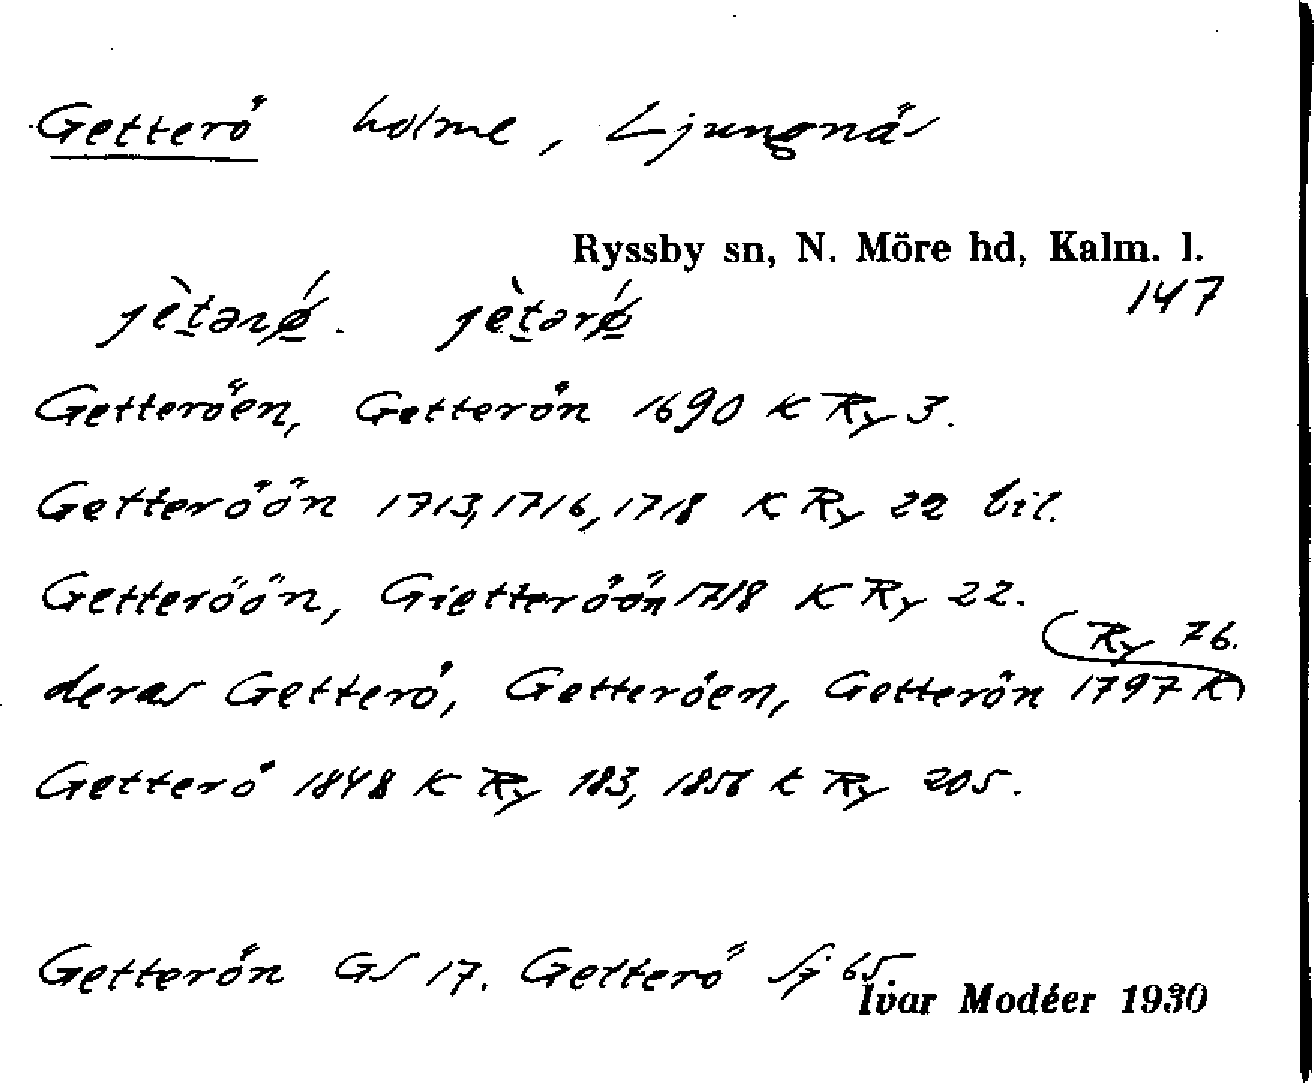 Getterö holme, Ljungnäs
Ryssby sn, N. Möre hd, Kalm. l.
147
jètarǿ. jètərǿ
Getteröen, Getterön 1690 K Ry 3.
Getteröön 1713, 1716, 1718 K Ry 22 bil.
Getteröön, Gietteröön 1718 K Ry 22.
deras Getterö, Getteröen, Getterön 1797 K Ry 76.
Getterö 1848 K Ry 183, 1856 K Ry 205.
Getterön GS 17. Getterö Sj 65.
Ivar Modéer 1930